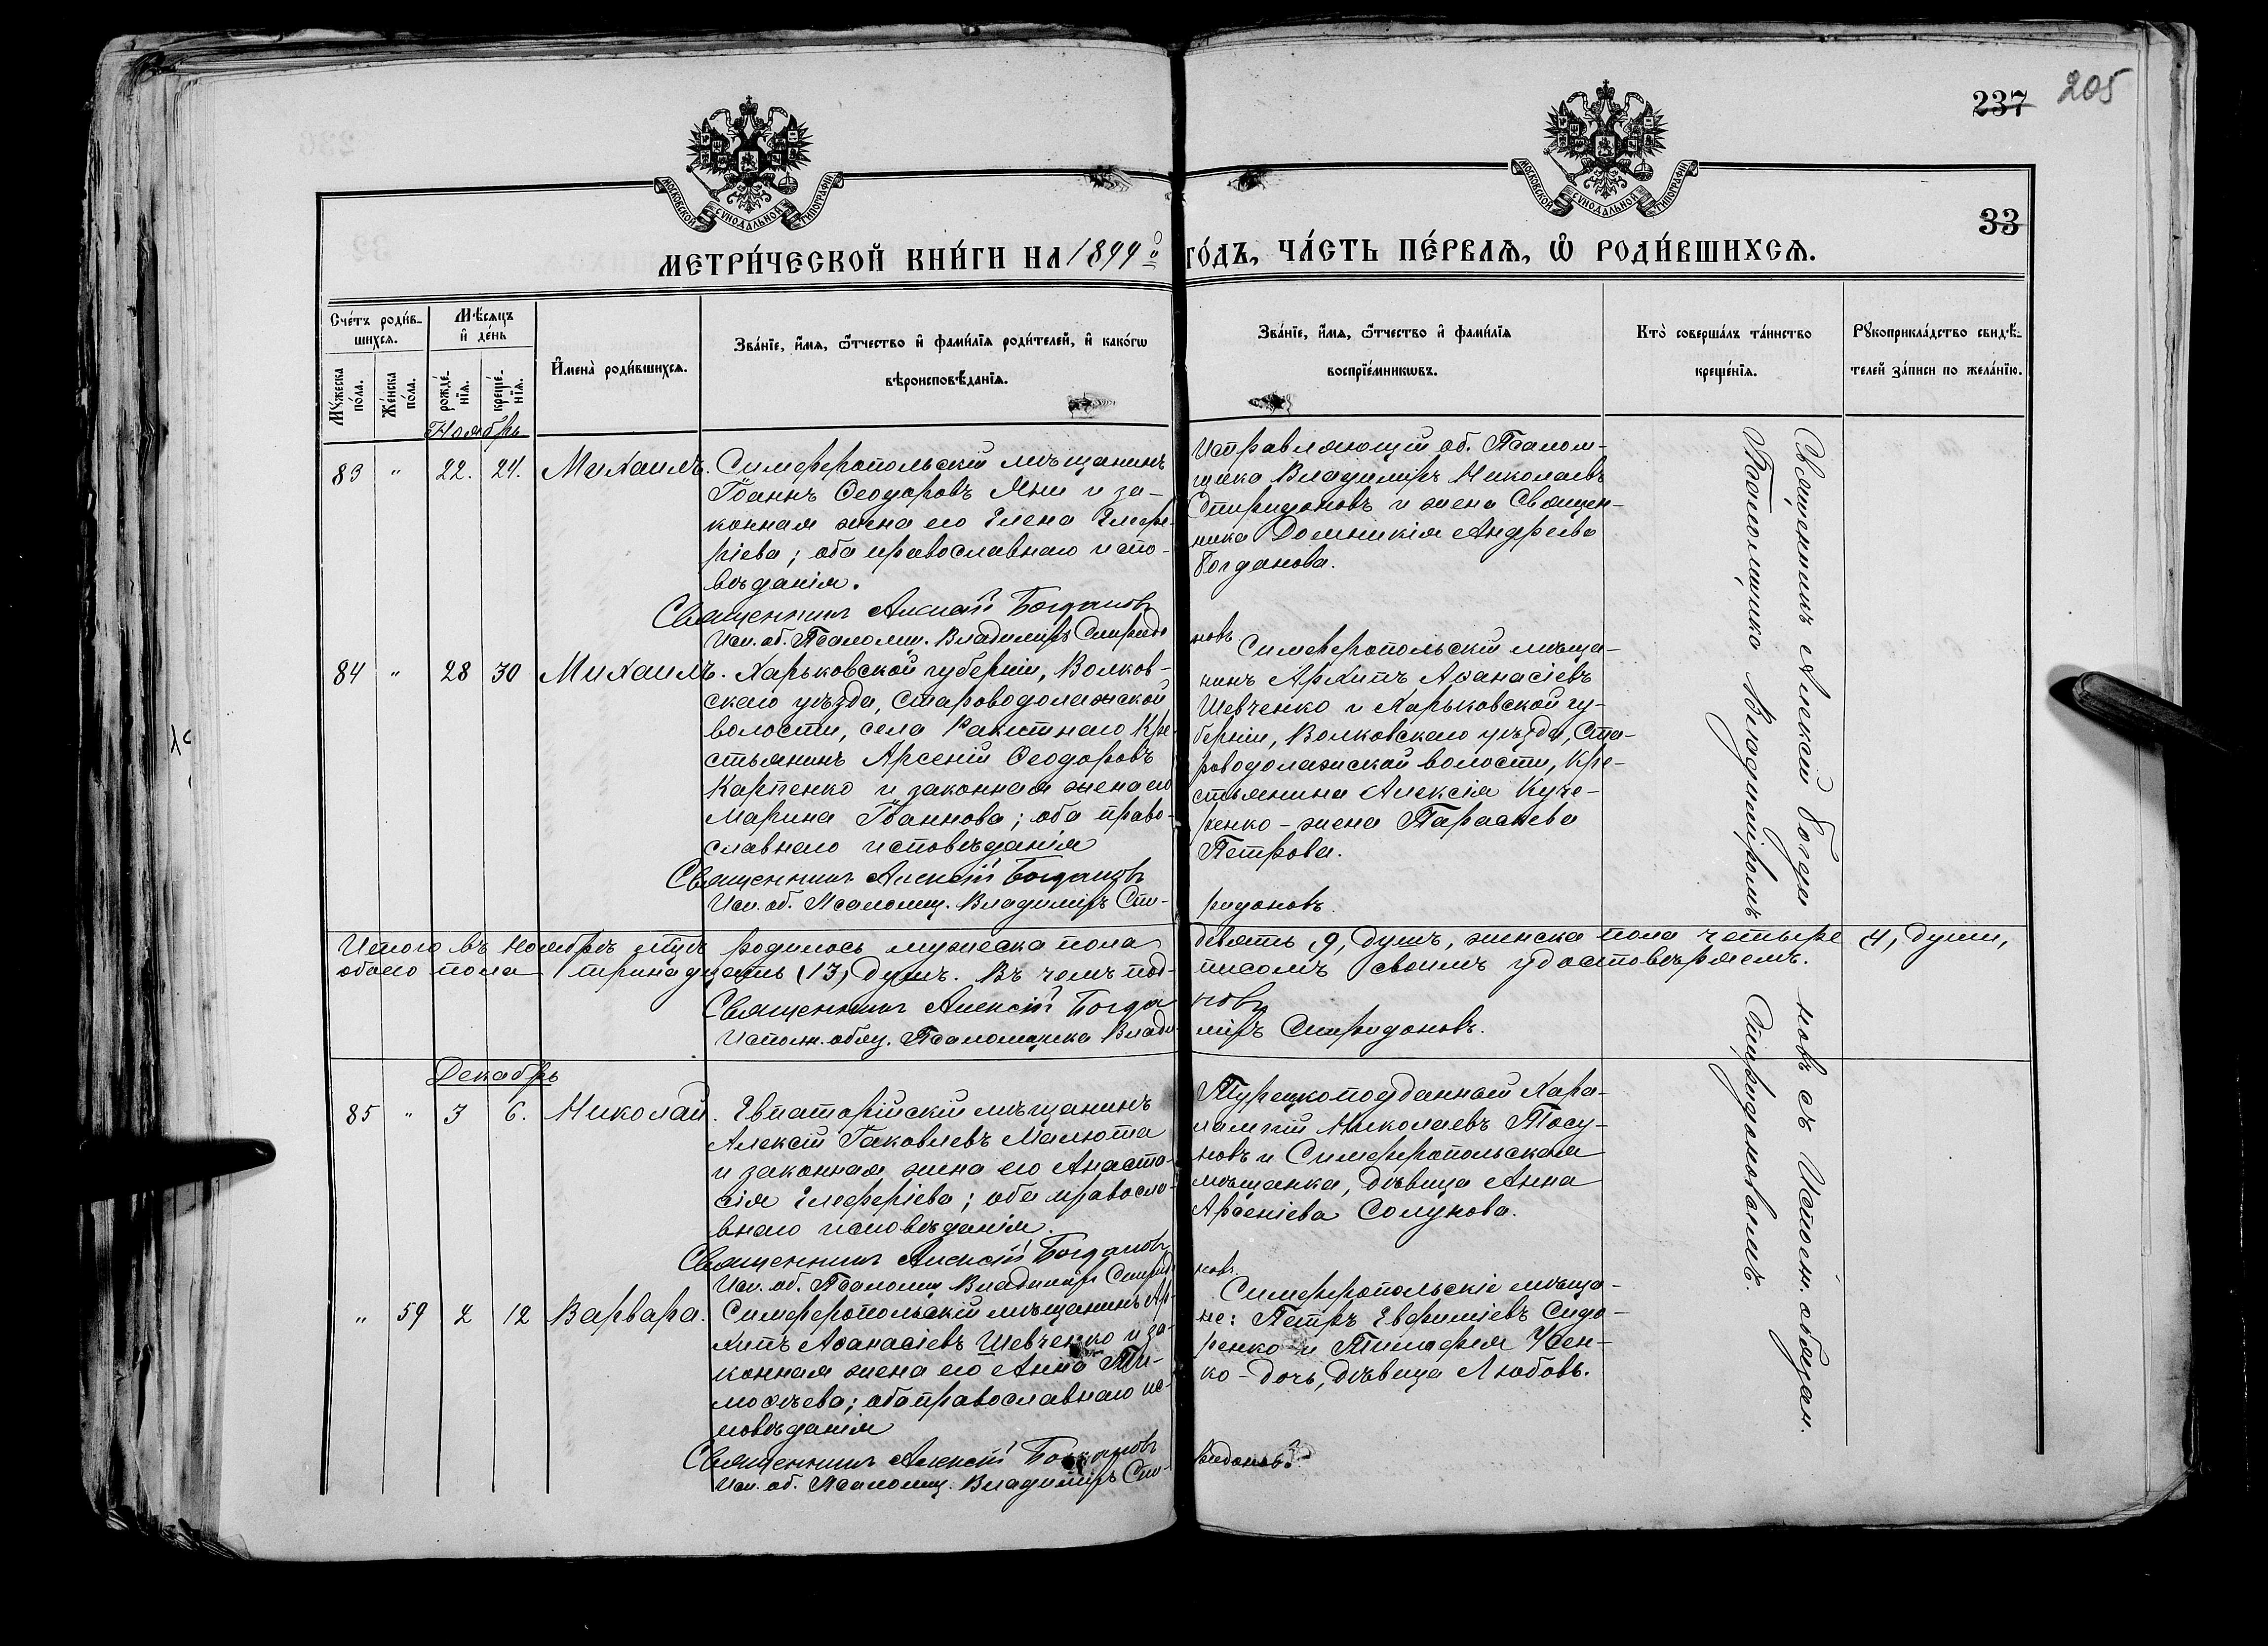 237 205
33
МОСКОВСКОЙ СѴНОДАЛЬНОЙ ТИПОГРАФІИ
МОСКОВСКОЙ СѴНОДАЛЬНОЙ ТИПОГРАФІИ
МЕТРИ́ЧЕСКОЙ КНИ́ГИ НА 1899 о ГО́ДЪ, ЧА́СТЬ ПЕ́РВАЯ, Ѡ РОДИ́ВШИХСЯ.
Сче́тъ роди́в-
шихся.
Мꙋ́жеска по́ла.
Же́нска по́ла.
Мѣ́сяцъ
и҆ де́нь
рожде́-нїя.
креще́-нїя.
И҆мена̀ роди́вшихся.
Зва́нїе, и҆́мя, ѻ҆́тчество и҆ фами́лїя роди́телей, и҆ како́гѡ
вѣроисповѣ́данїя.
Зва́нїе, и҆́мя, ѻ҆́тчество и҆ фами́лїя
воспрїе́мникѡвъ.
Кто̀ соверша́лъ та́инство
креще́нїя.
Рꙋкоприкла́дство свидѣ́-
телей за́писи по жела́нїю.
Ноябрь
83 " 22. 24. Михаилъ.
Симферопольскій мѣщанинъ
Іоаннъ Ѳеодоровъ Яни и за-
конная жена его Елена Елефе-
ріева; оба православнаго испо-
вѣданія.
Священникъ Алексій Богдановъ
Исп. об. Псаломщ. Владиміръ Спиридо
новъ
Исправляющій об. Псалом-
щика Владиміръ Николаевъ
Спиридоновъ и жена Священ-
ника Домникія Андреева
Богданова.
84 " 28 30 Михаилъ.
Харьковской губерніи, Волков-
скаго уѣзда, Староводолажской
волости, села Ракитнаго Кре-
стьянинъ Арсеній Ѳеодоровъ
Карпенко и законная жена его
Марина Іоаннова; оба право-
славнаго исповѣданія
Священникъ Алексій Богдановъ
Исп. об. Псаломщ. Владиміръ Спи-
ридоновъ.
Симферопольскій мѣща-
нинъ Архипъ Аѳанасіевъ
Шевченко и Харьковской гу-
берніи, Волковскаго уѣзда, Ста-
роводолажской волости, Кре-
стьянина Алексія Куче-
ренко - жена Параскева
Петрова.
Священникъ Алексій Богдановъ съ Исполн. обязан.
Псаломщика Владиміромъ Спиридоновымъ.
Итого въ ноябрѣ мѣсяцѣ родилось мужеска пола девять, 9, душъ, женска пола четыре, 4, души,
обоего пола тринадцать (13) душъ. Въ чемъ под-писомъ своимъ удостовѣряемъ.
Священникъ Алексій Богда новъ
Исполн. обяз. Псаломщика Влади-міръ Спиридоновъ.
Декабрь
85 " 3 6. Николай.
Евпаторійскій мѣщанинъ
Алексій Іаковлевъ Малюта
и законная жена его Анаста-
сія Елеферіева; оба правосла-
внаго исповѣданія.
Священникъ Алексій Богдановъ
Исп. об. Псаломщ. Владиміръ Спиридо
новъ.
Турецкоподданный Хара-
лампій Николаевъ Тосу-
новъ и Симферопольская
мѣщанка, дѣвица Анна
Арсеніева Солунова.
" 59 2 12 Варвара.
Симферопольскій мѣщанинъ Ар-
хипъ Аѳанасіевъ Шевченко и за-
конная жена его Анна Ти-
моѳеева; оба православнаго ис-
повѣданія
Священникъ Алексій Богдановъ
Исп. об. Псаломщ. Владиміръ Спи-
ридоновъ.
Симферопольскіе мѣща-
не: Петръ Евфиміевъ Сидо-
ренко и Тимофея Усен-
ко - дочь, дѣвица Любовь.